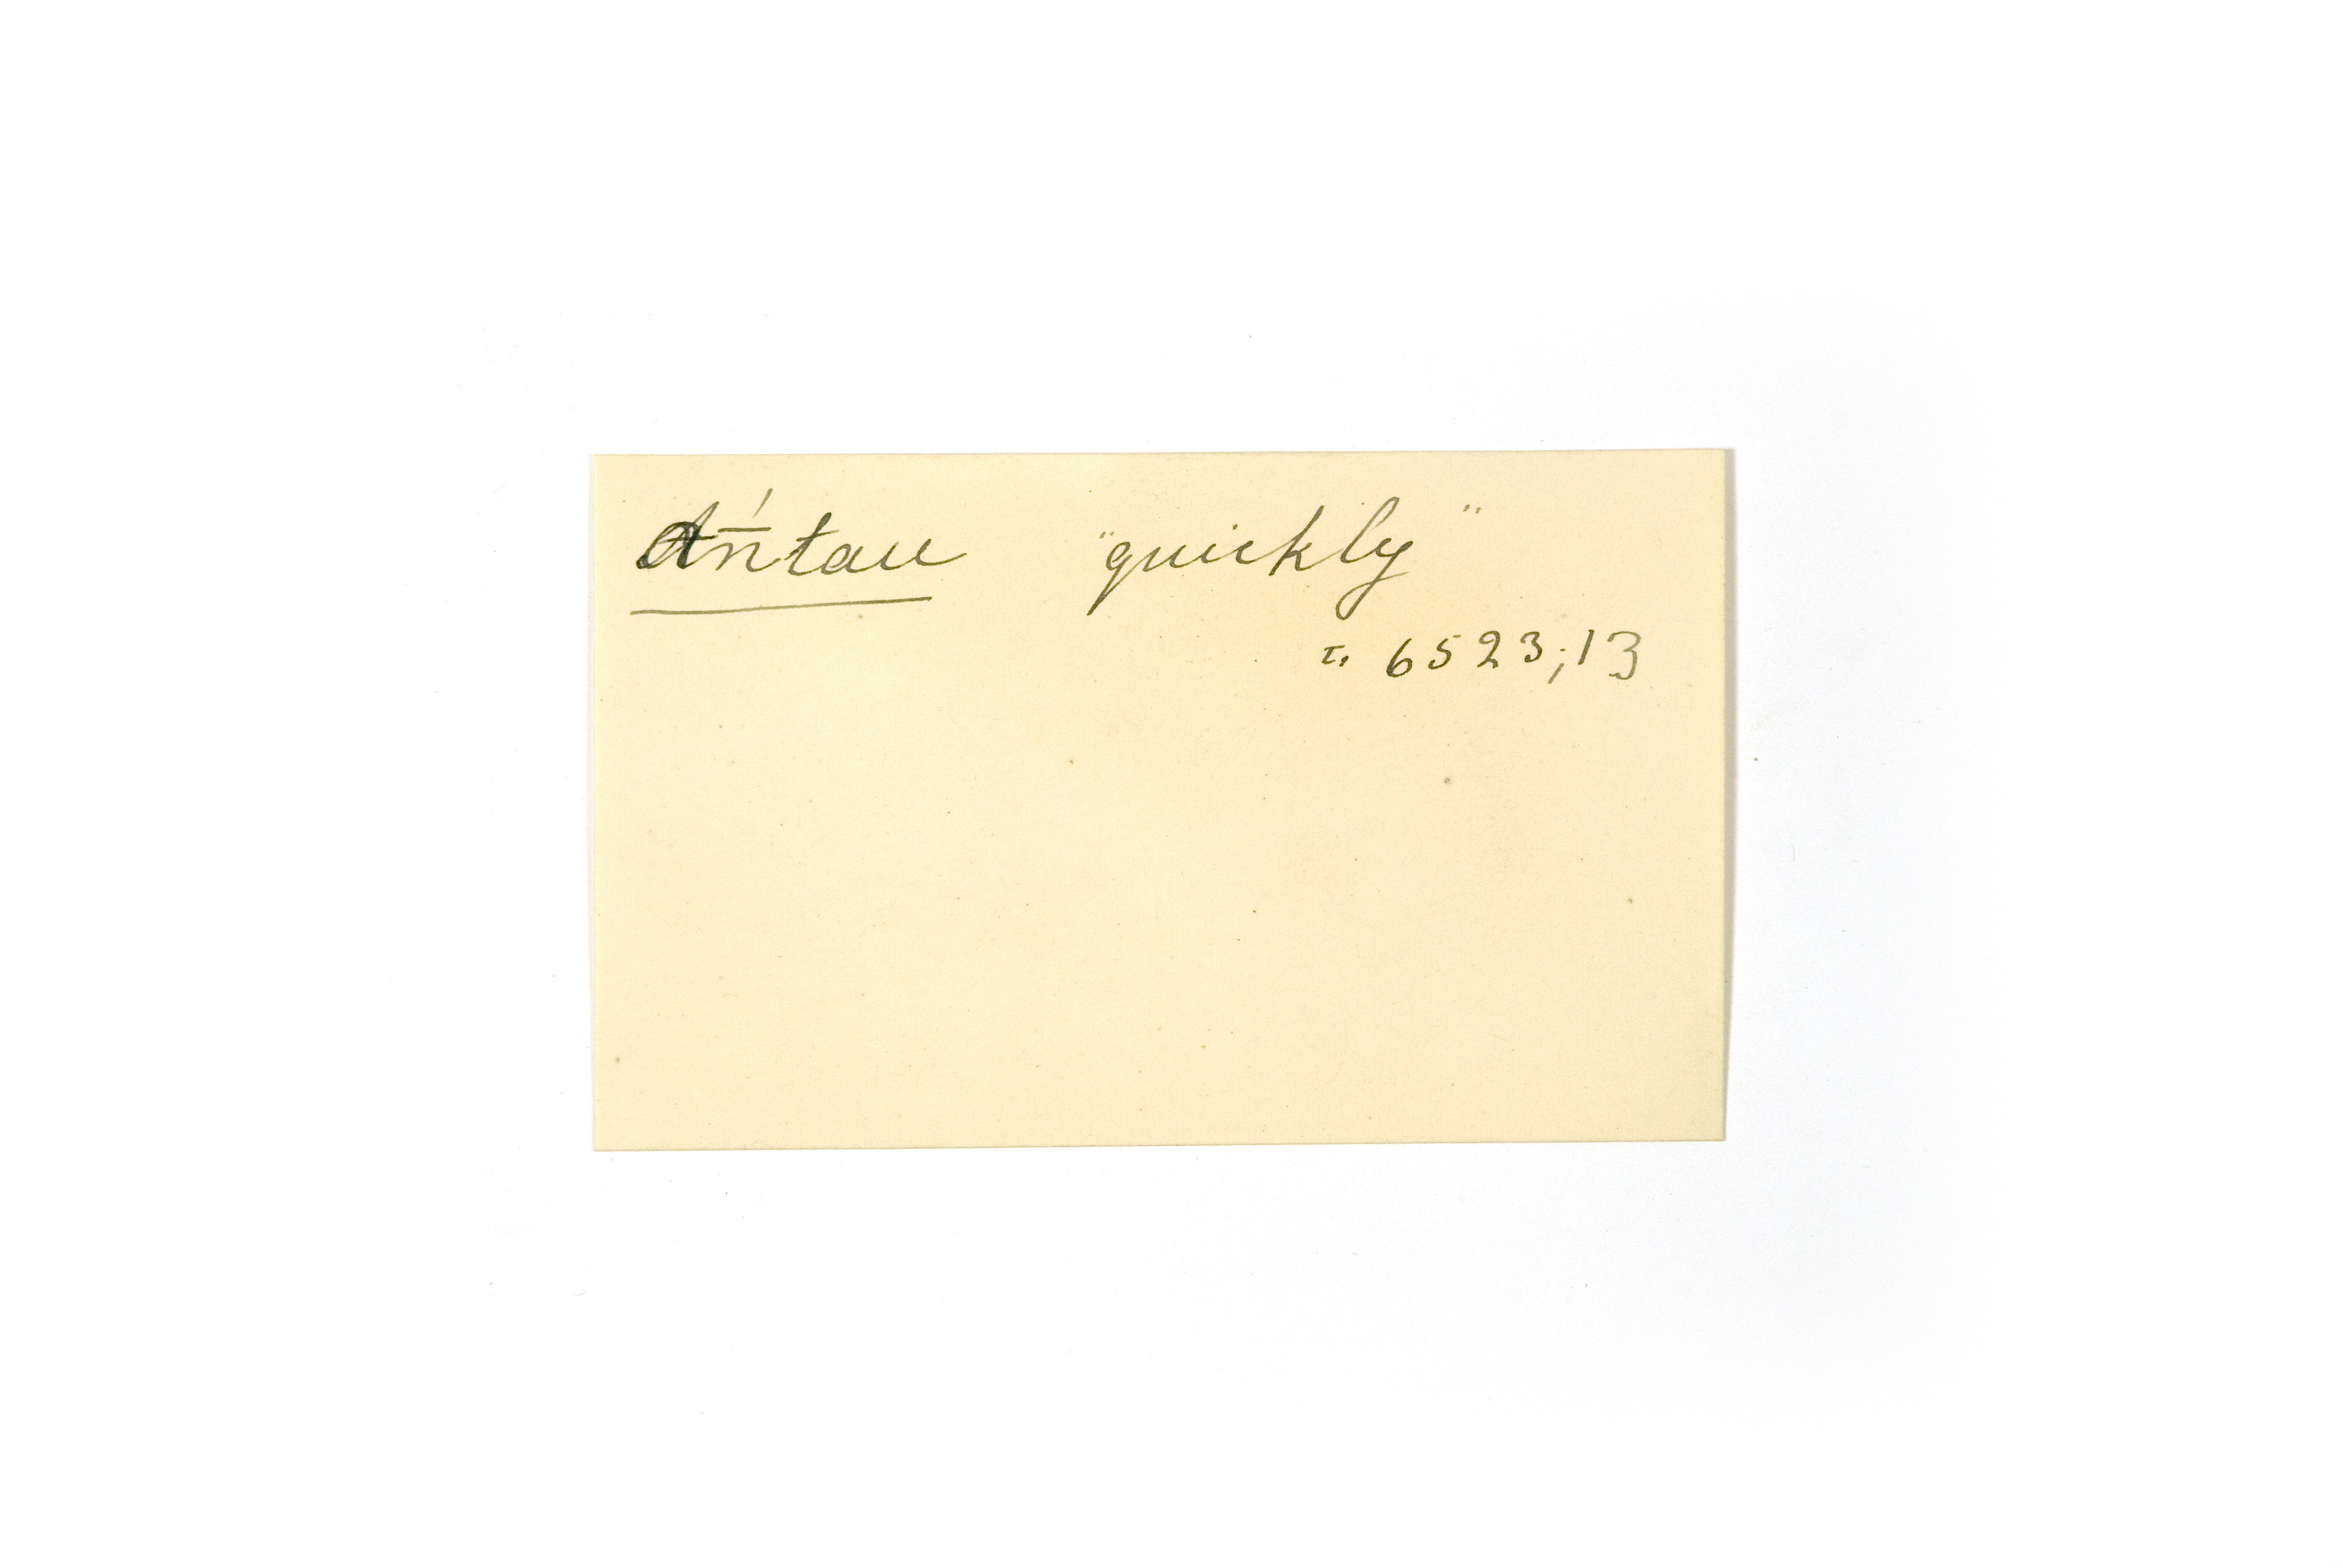 Ań̄tau "quickly"
T. 6523;13